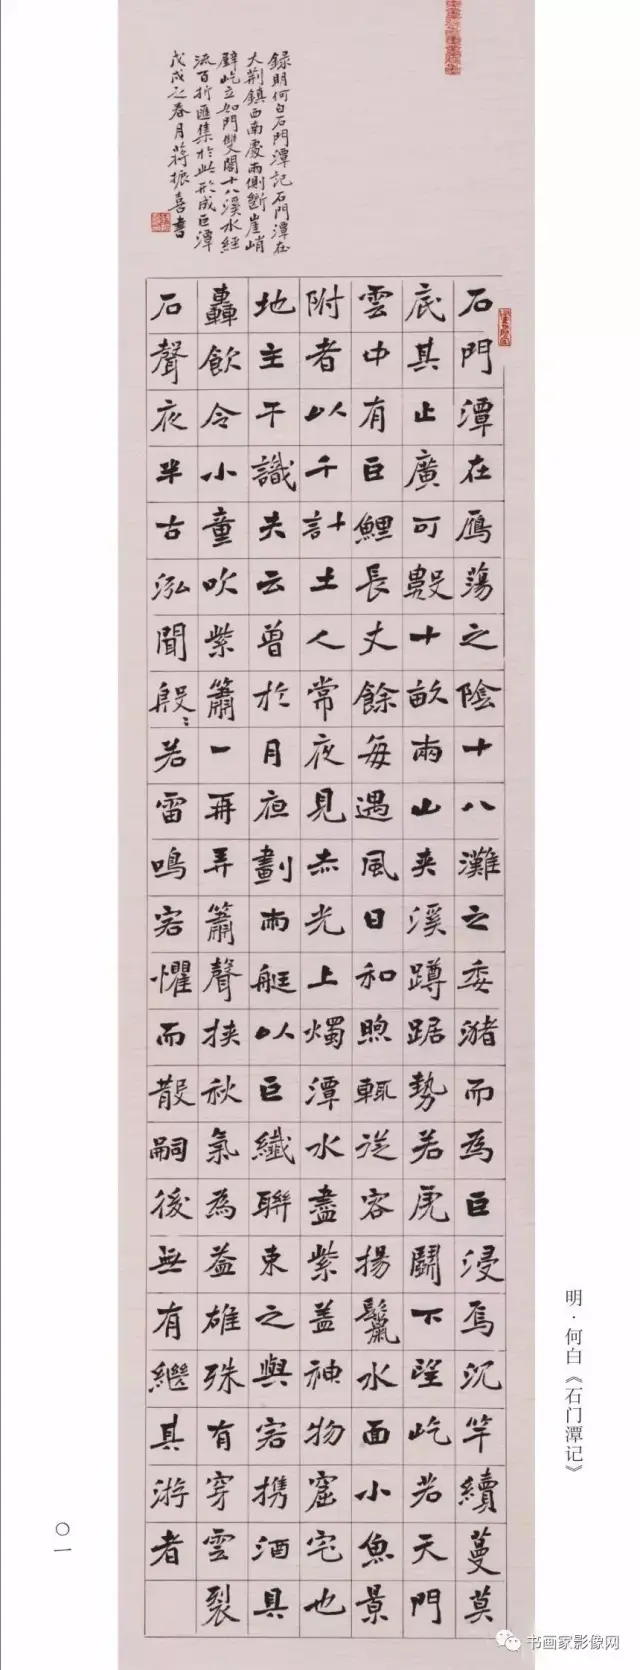 録明何白石門潭記石門潭在
大荆鎮西南處兩側斷崖峭
壁屹立如門雙闔十八溪水經
流百折匯集於此形成巨潭
戊戌之春月蔣振喜書
石門潭在鴈蕩之陰十八灘之委瀦而為巨浸焉沉竿續蔓莫
底其止廣可數十畝兩山夾溪蹲踞勢若虎鬭下望屹若天門
雲中有巨鯉長丈餘每遇風日和煦輒從容揚鬣水面小魚景
附者以千計土人常夜見赤光上燭潭水盡紫蓋神物窟宅也
地主干識夫云曾於月夜劃兩艇以巨纖聯束之與客携酒具
轟飲令小童吹紫簫一再弄簫聲挾秋氣為益雄殊有穿雲裂
石聲夜半古泓聞殷〻若雷鳴客懼而散嗣後無有繼其游者
明·何白《石门潭记》
〇一
书画家影像网